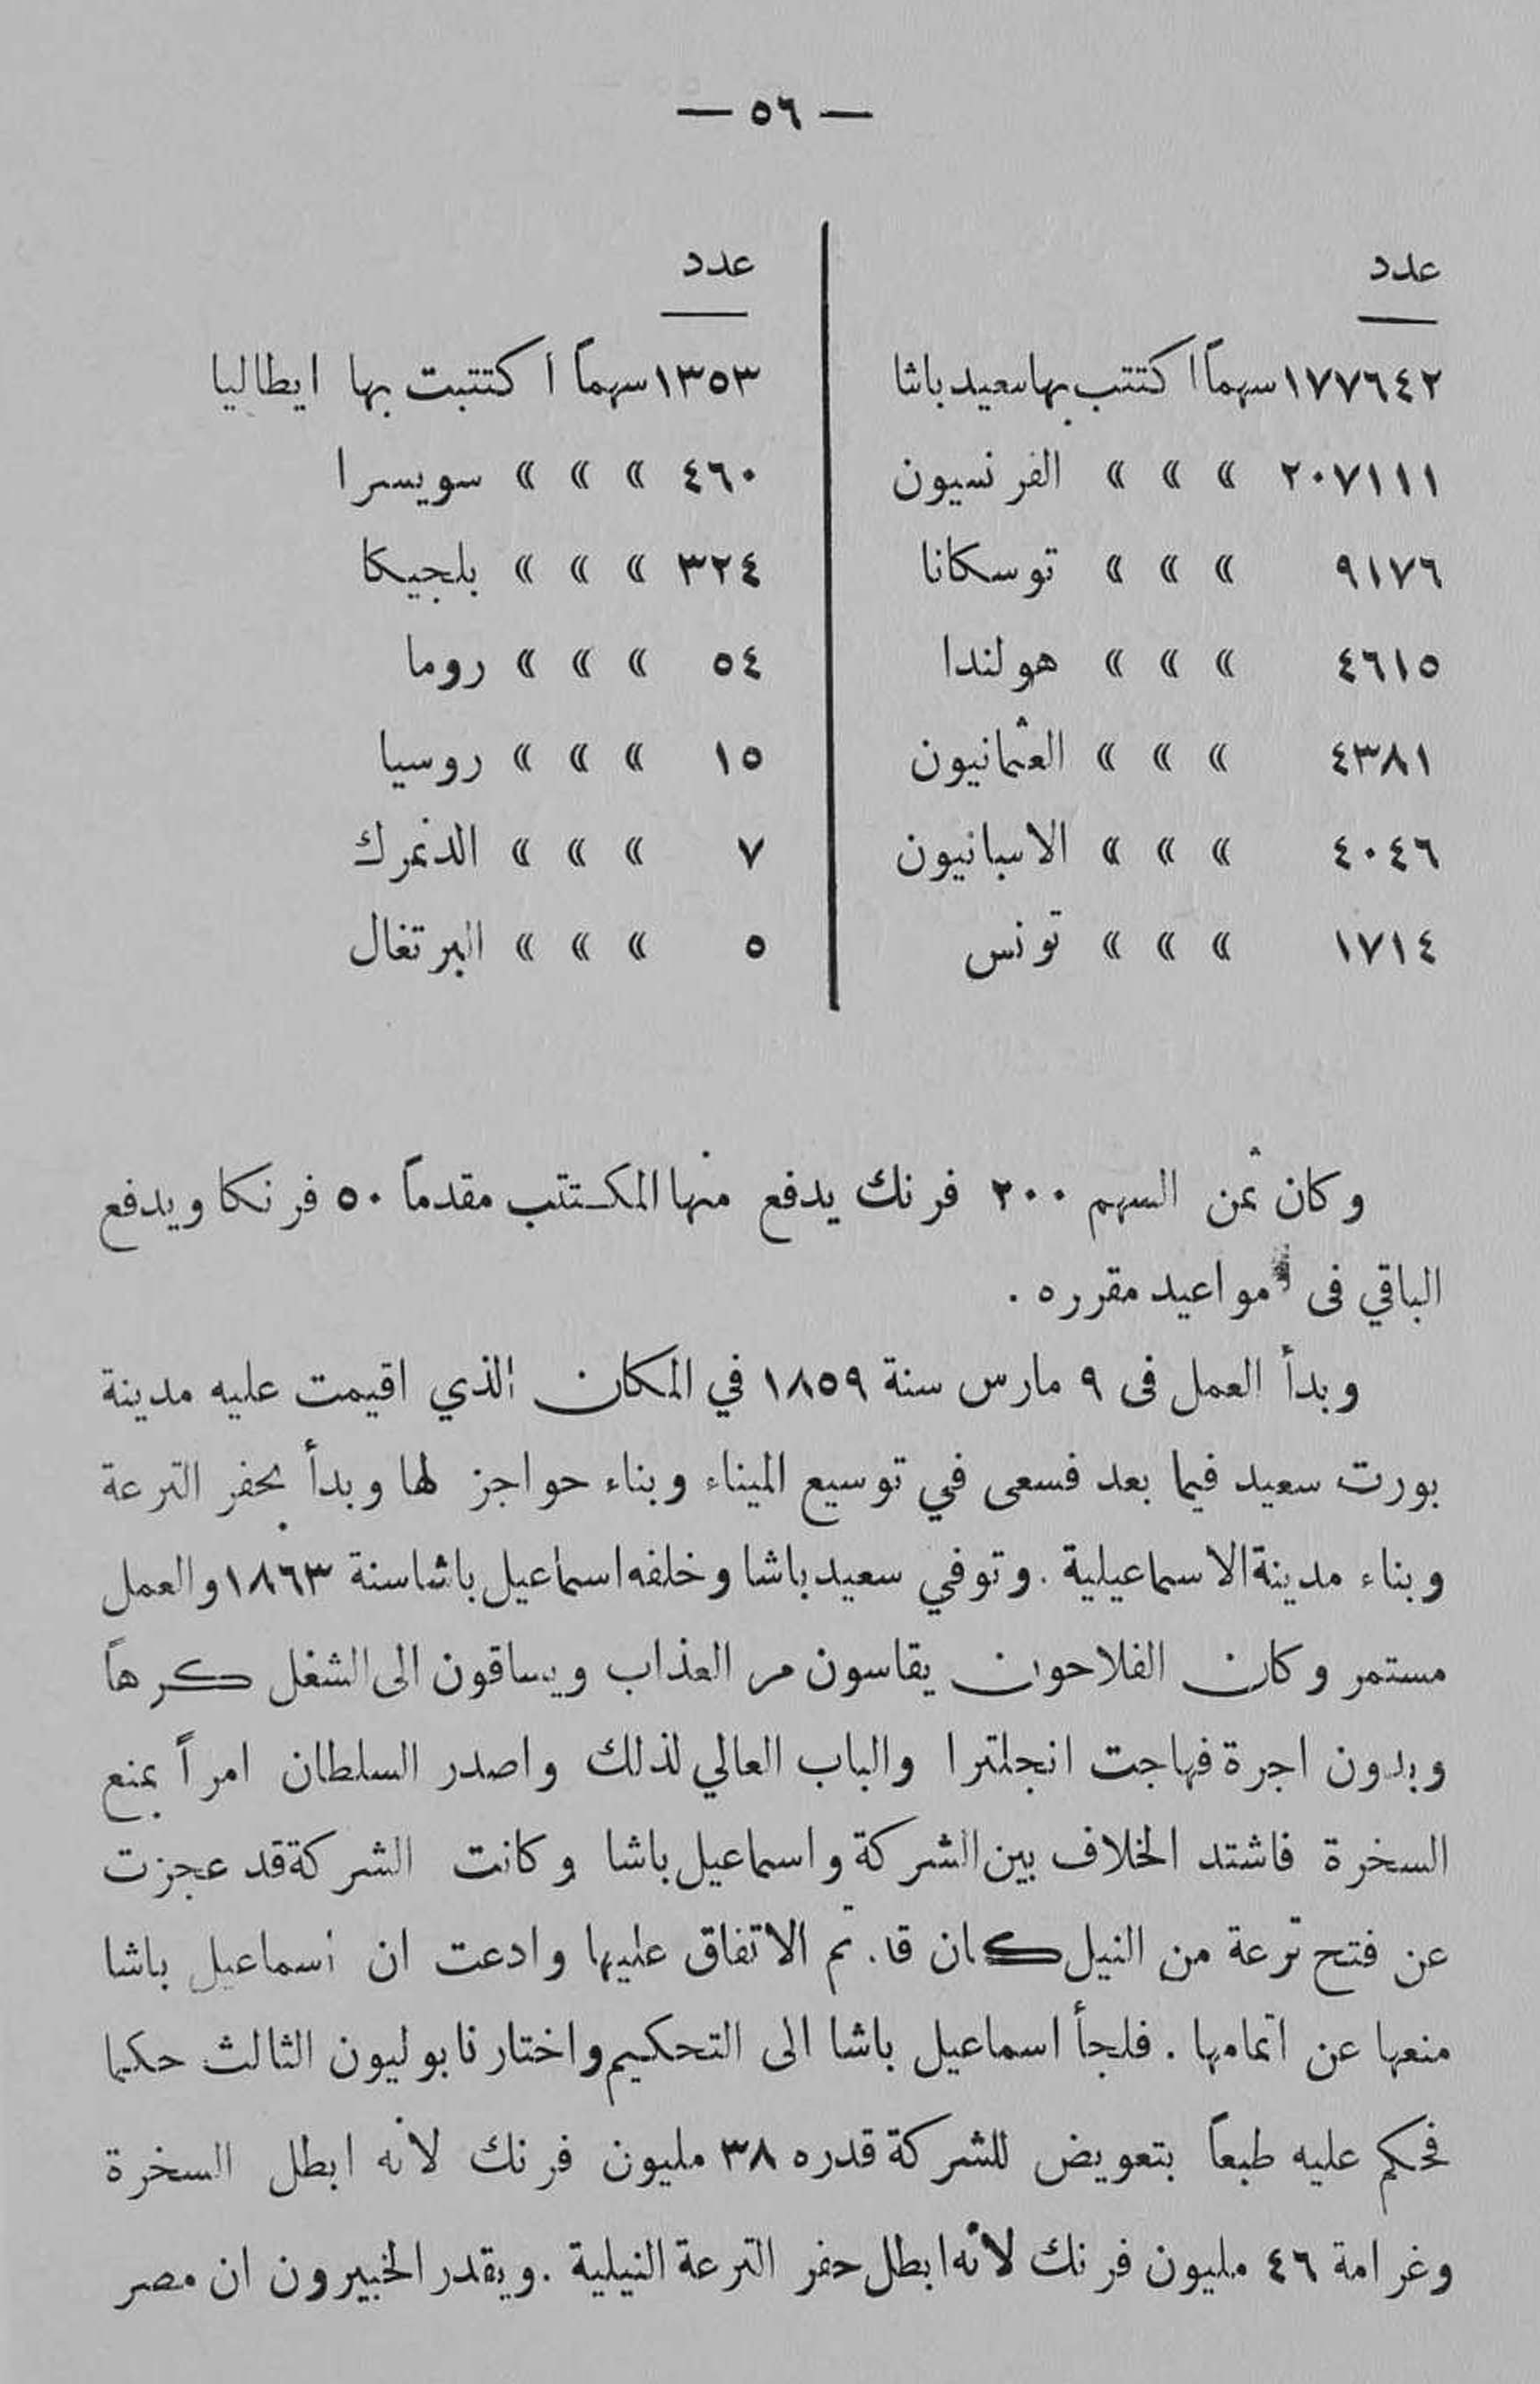 — ٥٦ —
عدد
١٧٧٦٤٢ سهماً اكتتب بها سعيد باشا
٢٠٧١١١ » » » الفرنسيون
٩١٧٦ » » » توسكانا
٤٦١٥ » » » هولندا
٤٣٨١ » » » العثمانيون
٤٠٤٦ » » » الاسبانيون
١٧١٤ » » » تونس
عدد
١٣٥٣ سهماً اكتتبت بها ايطاليا
٤٦٠ » » » سويسرا
٣٢٤ » » » بلجيكا
٥٤ » » » روما
١٥ » » » روسيا
٧ » » » الدنمرك
٥ » » » البرتغال
وكان ثمن السهم ٢٠٠ فرنك يدفع منها المكتتب مقدماً ٥٠ فرنكا ويدفع
الباقي فى مواعيد مقرره .
وبدأ العمل فى ٩ مارس سنة ١٨٥٩ في المكان الذي اقيمت عليه مدينة
بورت سعيد فيما بعد فسعى في توسيع الميناء وبناء حواجز لها وبدأ بحفر الترعة
وبناء مدينة الاسماعيلية . وتوفي سعيد باشا وخلفه اسماعيل باشا سنة ١٨٦٣ والعمل
مستمر وكان الفلاحون يقاسون مر العذاب ويساقون الى الشغل كرهاً
وبدون اجرة فهاجت انجلترا والباب العالي لذلك واصدر السلطان امراً بمنع
السخرة فاشتد الخلاف بين الشركة واسماعيل باشا وكانت الشركة قد عجزت
عن فتح ترعة من النيل كان قد تم الاتفاق عليها وادعت ان اسماعيل باشا
منعها عن اتمامها . فلجأ اسماعيل باشا الى التحكيم واختار نابوليون الثالث حكما
فحكم عليه طبعاً بتعويض للشركة قدره ٣٨ مليون فرنك لانه ابطل السخرة
وغرامة ٤٦ مليون فرنك لانه ابطل حفر الترعة النيلية . ويقدر الخبيرون ان مصر